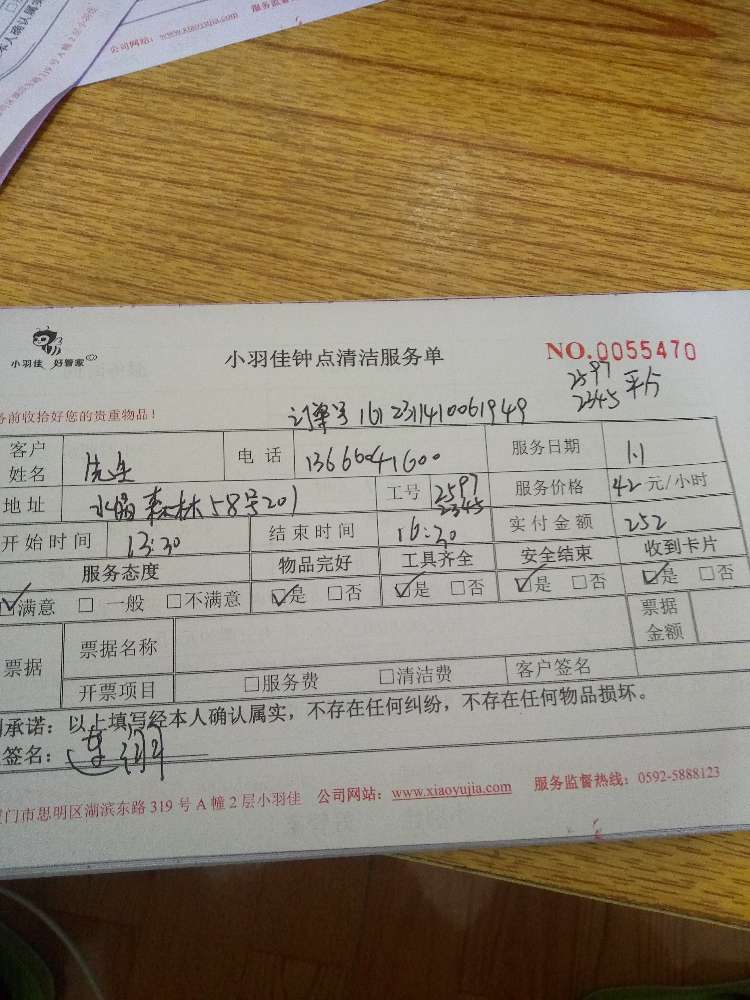 公司网站：www.xiaoyujia.com 服务监督
319号A幢2层小羽佳
本人确认属实
小羽佳 好管家
小羽佳钟点清洁服务单
NO.0055470
务前收拾好您的贵重物品！
订单号 1612311410061949
2597
2345 平分
客户姓名 先生 电话 13666041600 服务日期 1.1
地址 水晶森林58号201 工号 2597 2345 服务价格 42元/小时
开始时间 13:30 结束时间 16:30 实付金额 252
服务态度 物品完好 工具齐全 安全结束 收到卡片
☑满意 □一般 □不满意 ☑是 □否 ☑是 □否 ☑是 □否 ☑是 □否
票据 票据名称 票据金额
开票项目 □服务费 □清洁费 客户签名
承诺：以上填写经本人确认属实，不存在任何纠纷，不存在任何物品损坏。
签名：
门市思明区湖滨东路319号A幢2层小羽佳 公司网站：www.xiaoyujia.com 服务监督热线：0592-5888123